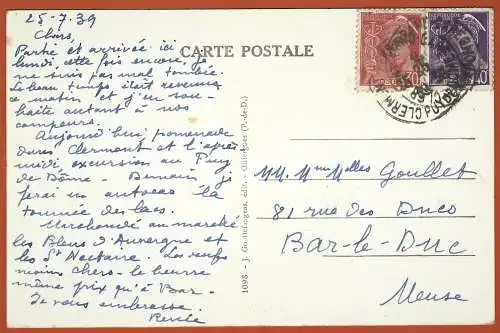 25-7.39
Chers,
Partie et arrivée ici
lundi, cette fois encore, je
ne suis pas mal tombée.
Le beau temps était revenu
ce matin et j'en sou-
haite autant à nos
campeurs.
Aujourd'hui promenade
dans Clermont et l'après
midi, excursion au Puy
de Dôme - Demain je
ferai en autocar la
tournée des lacs.
Marchandé au marché
les Bleus d'Auvergne et
les St Nectaire. Les oeufs
moins chers - le beurre
même prix qu'à Bar -
Je vous embrasse.
Renée
CARTE POSTALE
1098 - J. Gouttefangeas, édit. - Olliergues (P.-de-D.)
30
40
MM. Mme Melles Goullet
81 rue des Ducs
Bar-le-Duc
Meuse